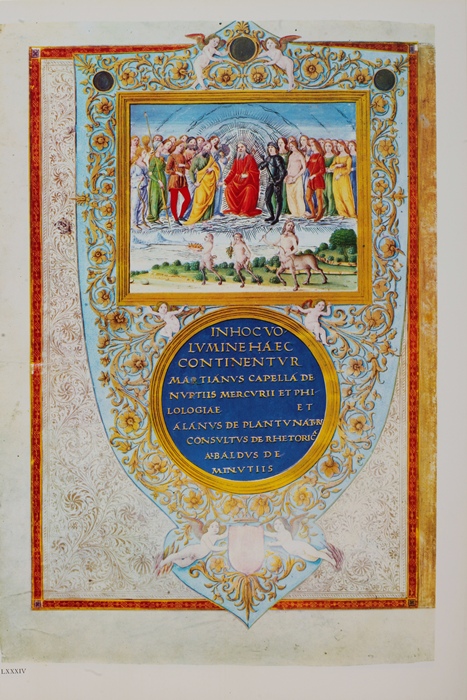 IN HOC VO
LVMINE HÁEC
CONTINENTVR
MARTIANVS CAPELLA DE
NVPTIIS MERCVRII ET PHI
LOLOGIAE ET
ALANVS DE PLANTV NATVR
CONSVLTVS DE RHETORIC
BALDVS DE
MINVTIIS
LXXXIV